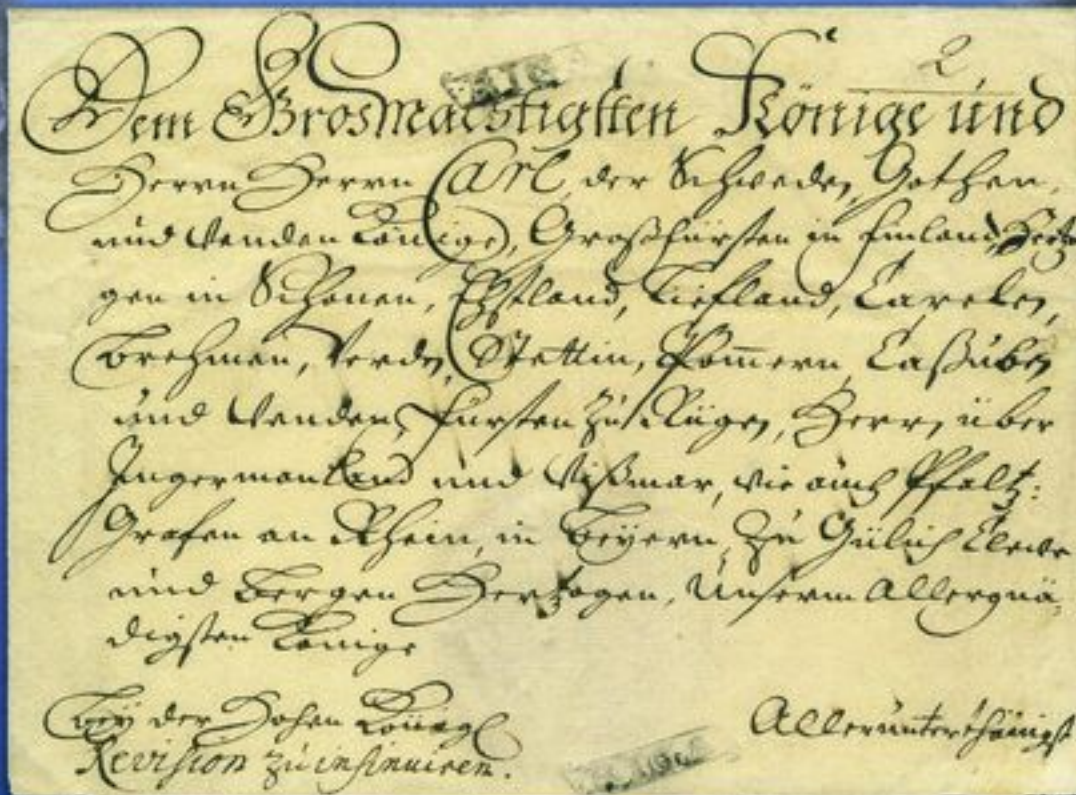 2
Dem Grosmächtigsten Könige und
Herrn Herrn Carl, der Schweden, Gothen,
und Wenden Könige, Großfürsten in Finland, Hertzo
gen in Schonen, Ehstland, Liefland, Carelen,
Brehmen, Verden, Stettin, Pommern, Caßuben
und Wenden, Fürsten zu Rügen, Herrn über
Ingermanland und Wißmar, wie auch Pfaltz:
Grafen an Rhein, in Beyern, zu Gülich Cleve
und Bergen Hertzogen, Unserm Allergnä,
digsten Könige
Bey der Hohen Königl
Revision zu insinuiren.
Allerunterthänigst